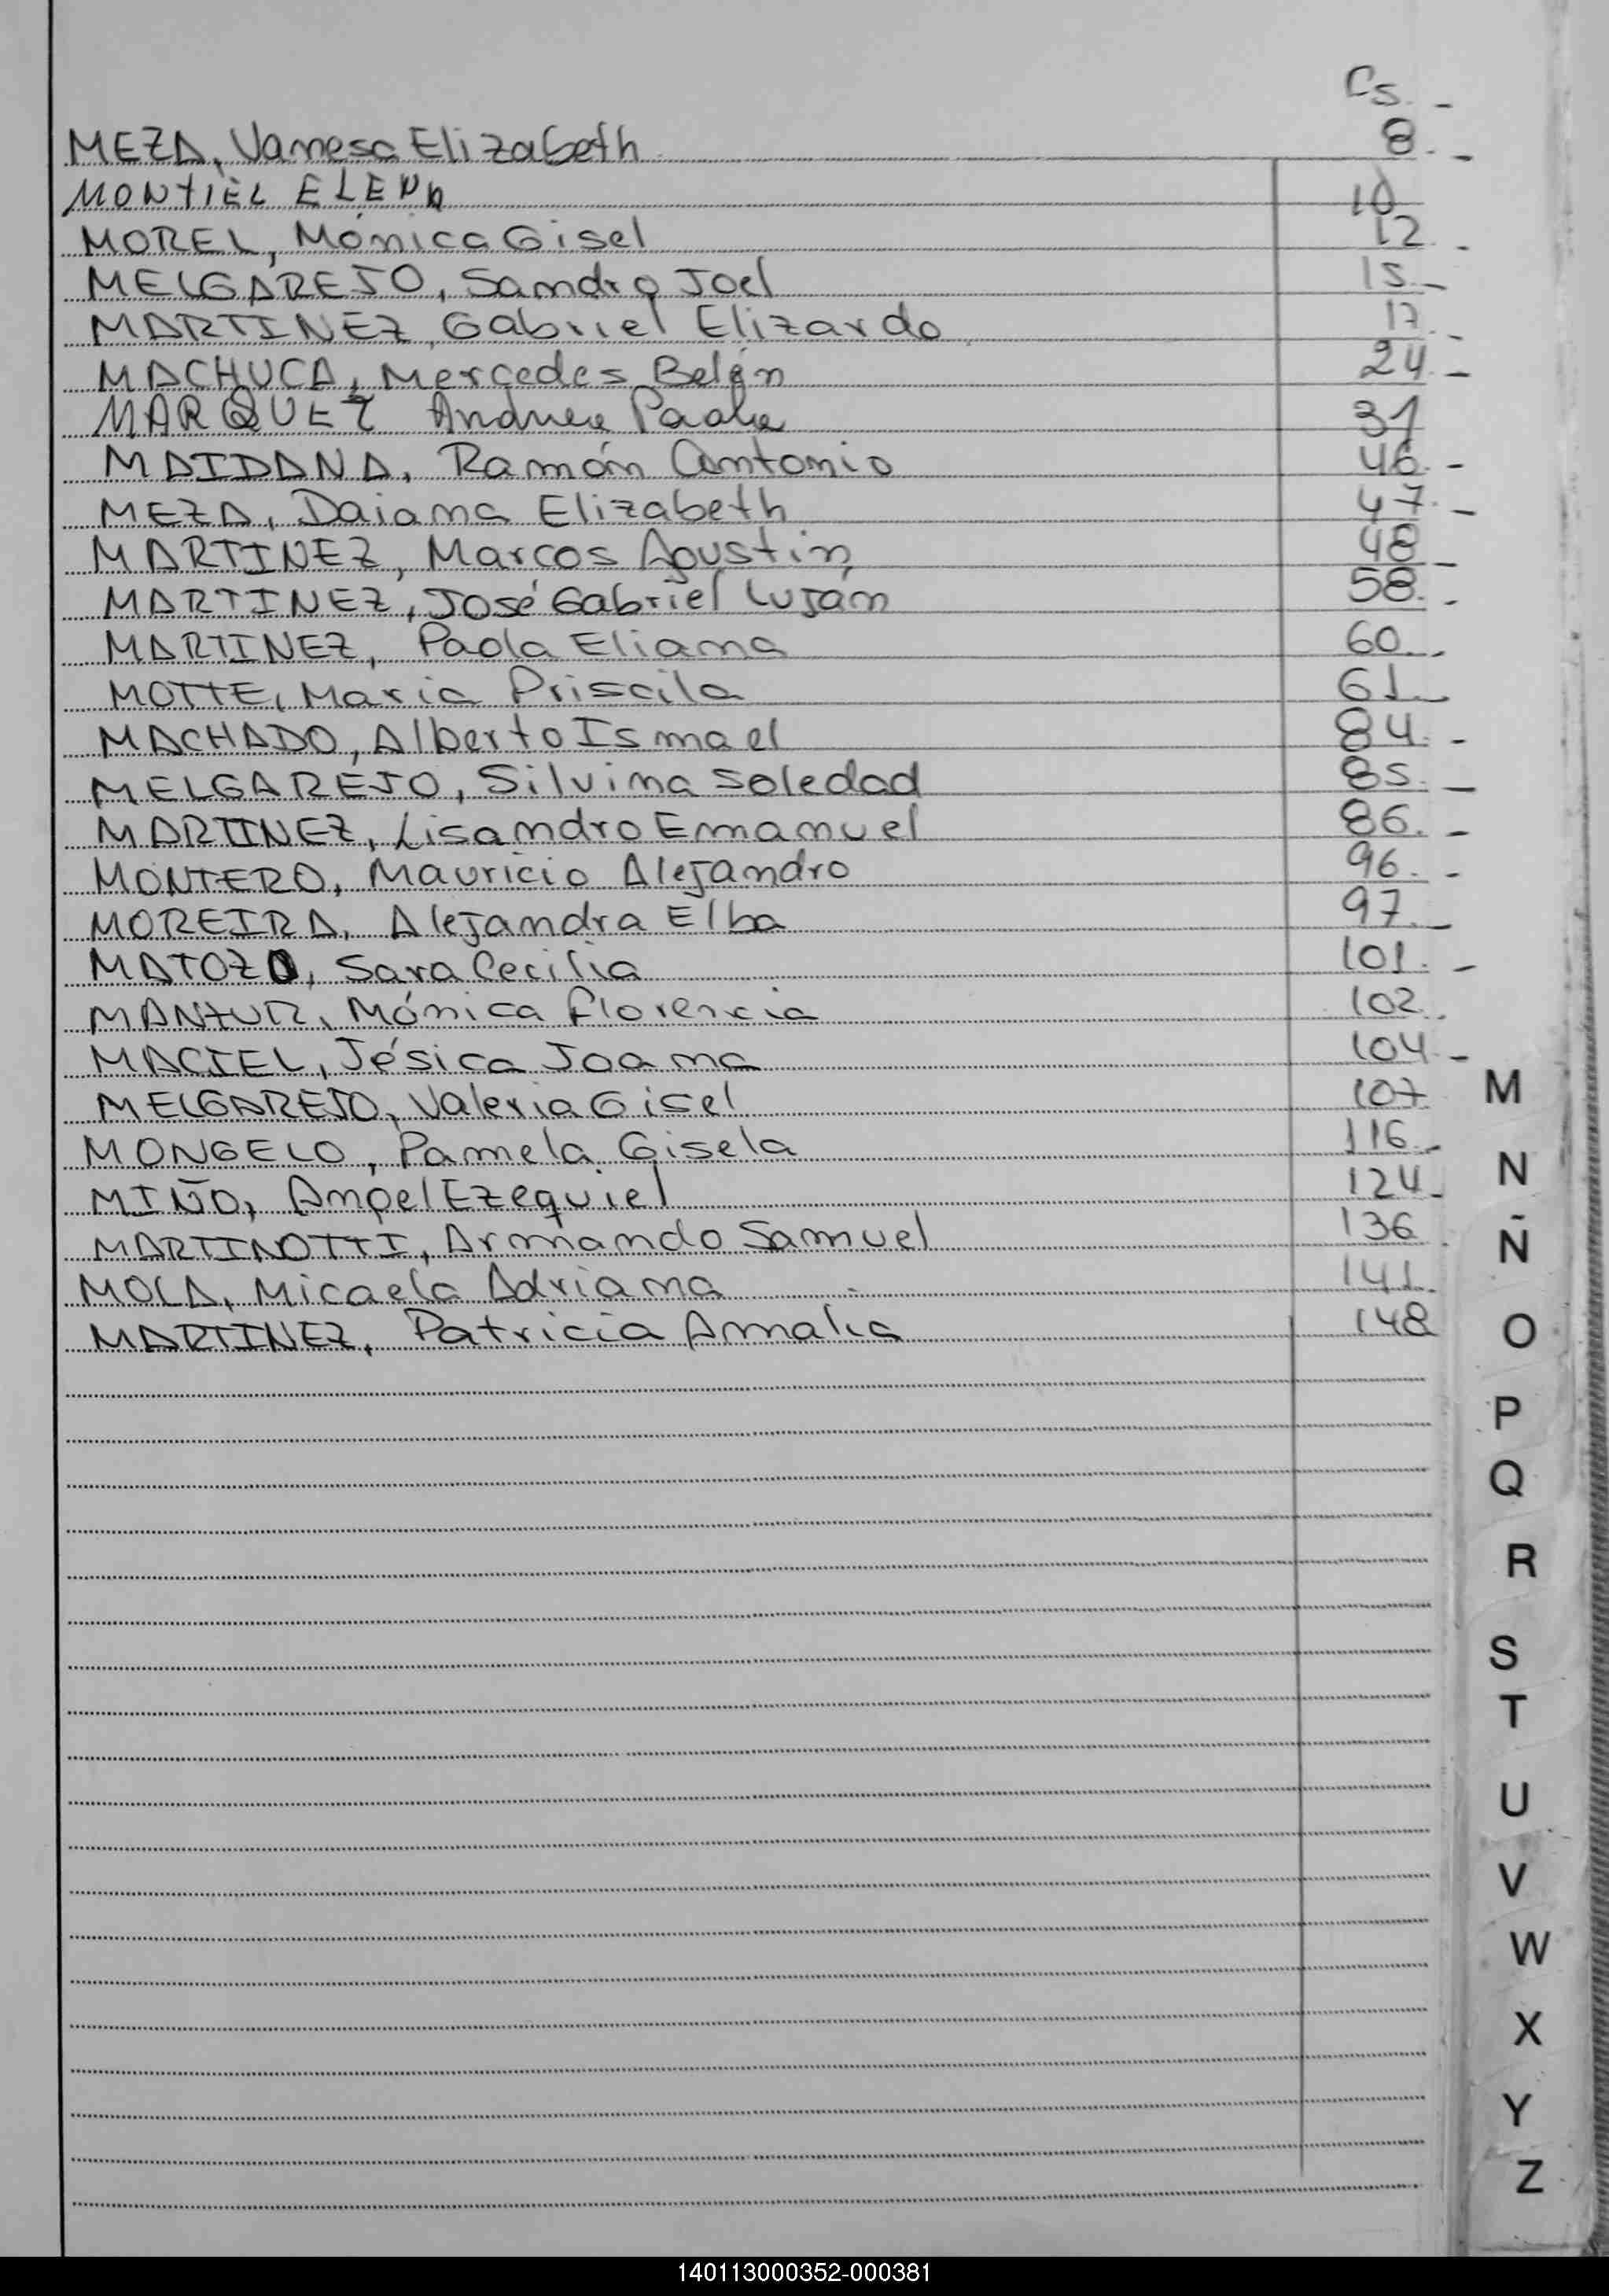 Cs. -
MEZA, Vanesa Elizabeth 8. -
MONTIEL ELENA 10
MOREL, Mónica Gisel 12. -
MELGAREJO, Sandro Joel 15. -
MARTINEZ, Gabriel Elizardo 17. -
MACHUCA, Mercedes Belén 24. -
MARQUEZ Andrea Paola 31
MAIDANA, Ramón Antonio 46. -
MEZA, Daiana Elizabeth 47. -
MARTINEZ, Marcos Agustin 48 -
MARTINEZ, José Gabriel Luján 58. -
MARTINEZ, Paola Eliana 60. -
MOTTE, Maria Priscila 61. -
MACHADO, Alberto Ismael 84. -
MELGAREJO, Silvina Soledad 85. -
MARTINEZ, Lisandro Emanuel 86. -
MONTERO, Mauricio Alejandro 96. -
MOREIRA, Alejandra Elba 97. -
MATOZO, Sara Cecilia 101. -
MANZUR, Mónica Florencia 102. -
MACIEL, Jésica Joana 104. -
MELGAREJO, Valeria Gisel 107
MONGELO, Pamela Gisela 116. -
MIÑO, Angel Ezequiel 124. -
MARTINOTTI, Armando Samuel 136
MOLA, Micaela Adriana 141.
MARTINEZ, Patricia Amalia 148
M
N
Ñ
O
P
Q
R
S
T
U
V
W
X
Y
Z
140113000352-000381